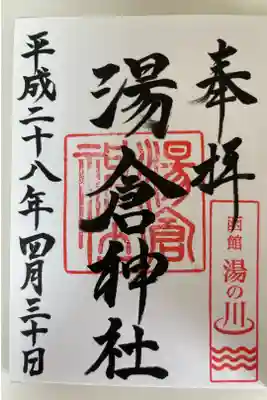 奉拝
函館
湯の川
湯倉神社
湯倉神社
平成二十八年四月三十日